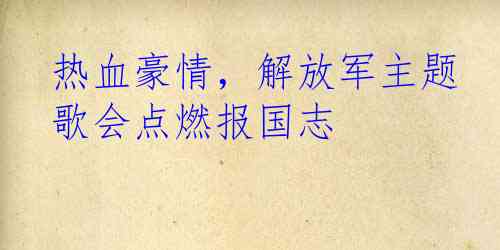 热血豪情，解放军主题
歌会点燃报国志